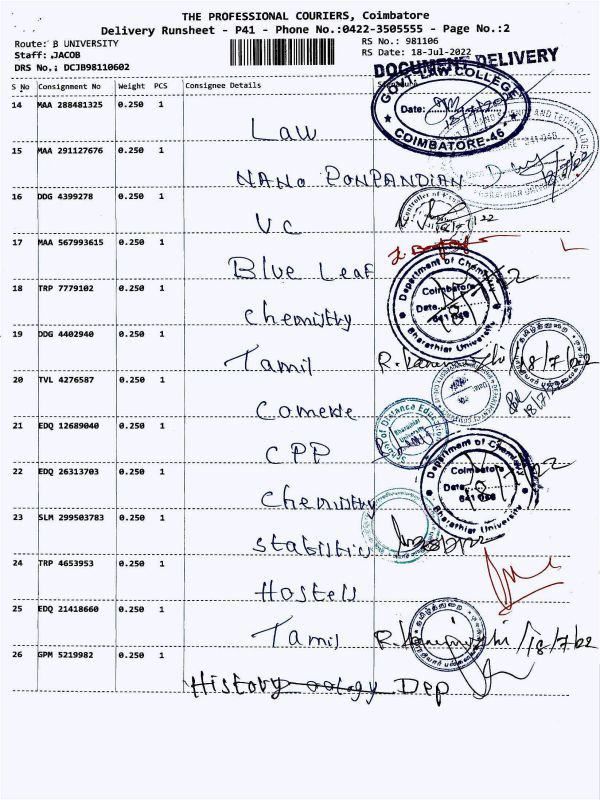 THE PROFESSIONAL COURIERS, Coimbatore
Delivery Runsheet - P41 - Phone No.:0422-3505555 - Page No.:2
Route: B UNIVERSITY
Staff: JACOB
DRS No.: DCJB98110602
RS No.: 981106
RS Date: 18-Jul-2022
DOCUMENT DELIVERY
S No Consignment No Weight PCS Consignee Details
14 MAA 288481325 0.250 1
Law
GOVT. LAW COLLEGE
Date:
COIMBATORE-46
15 MAA 291127676 0.250 1
NANO PONPANDIAN
18/7/22
16 DDG 4399278 0.250 1
VC
17 MAA 567993615 0.250 1
Blue Leaf
18 TRP 7779102 0.250 1
Chemistry
Department of Chemistry
Coimbatore
Date
641 046
Bharathiar University
19 DDG 4402940 0.250 1
Tamil
18/7/22
20 TVL 4276587 0.250 1
18/7/22
21 EDQ 12689040 0.250 1
CPP
of Distance Education
Bharathiar
University
22 EDQ 26313703 0.250 1
Chemistry
Department of Chemistry
Coimbatore
Date
641 046
Bharathiar University
23 SLM 299503783 0.250 1
24 TRP 4653953 0.250 1
Hostel
25 EDQ 21418660 0.250 1
Tamil
18/7/22
26 GPM 5219982 0.250 1
History Dep